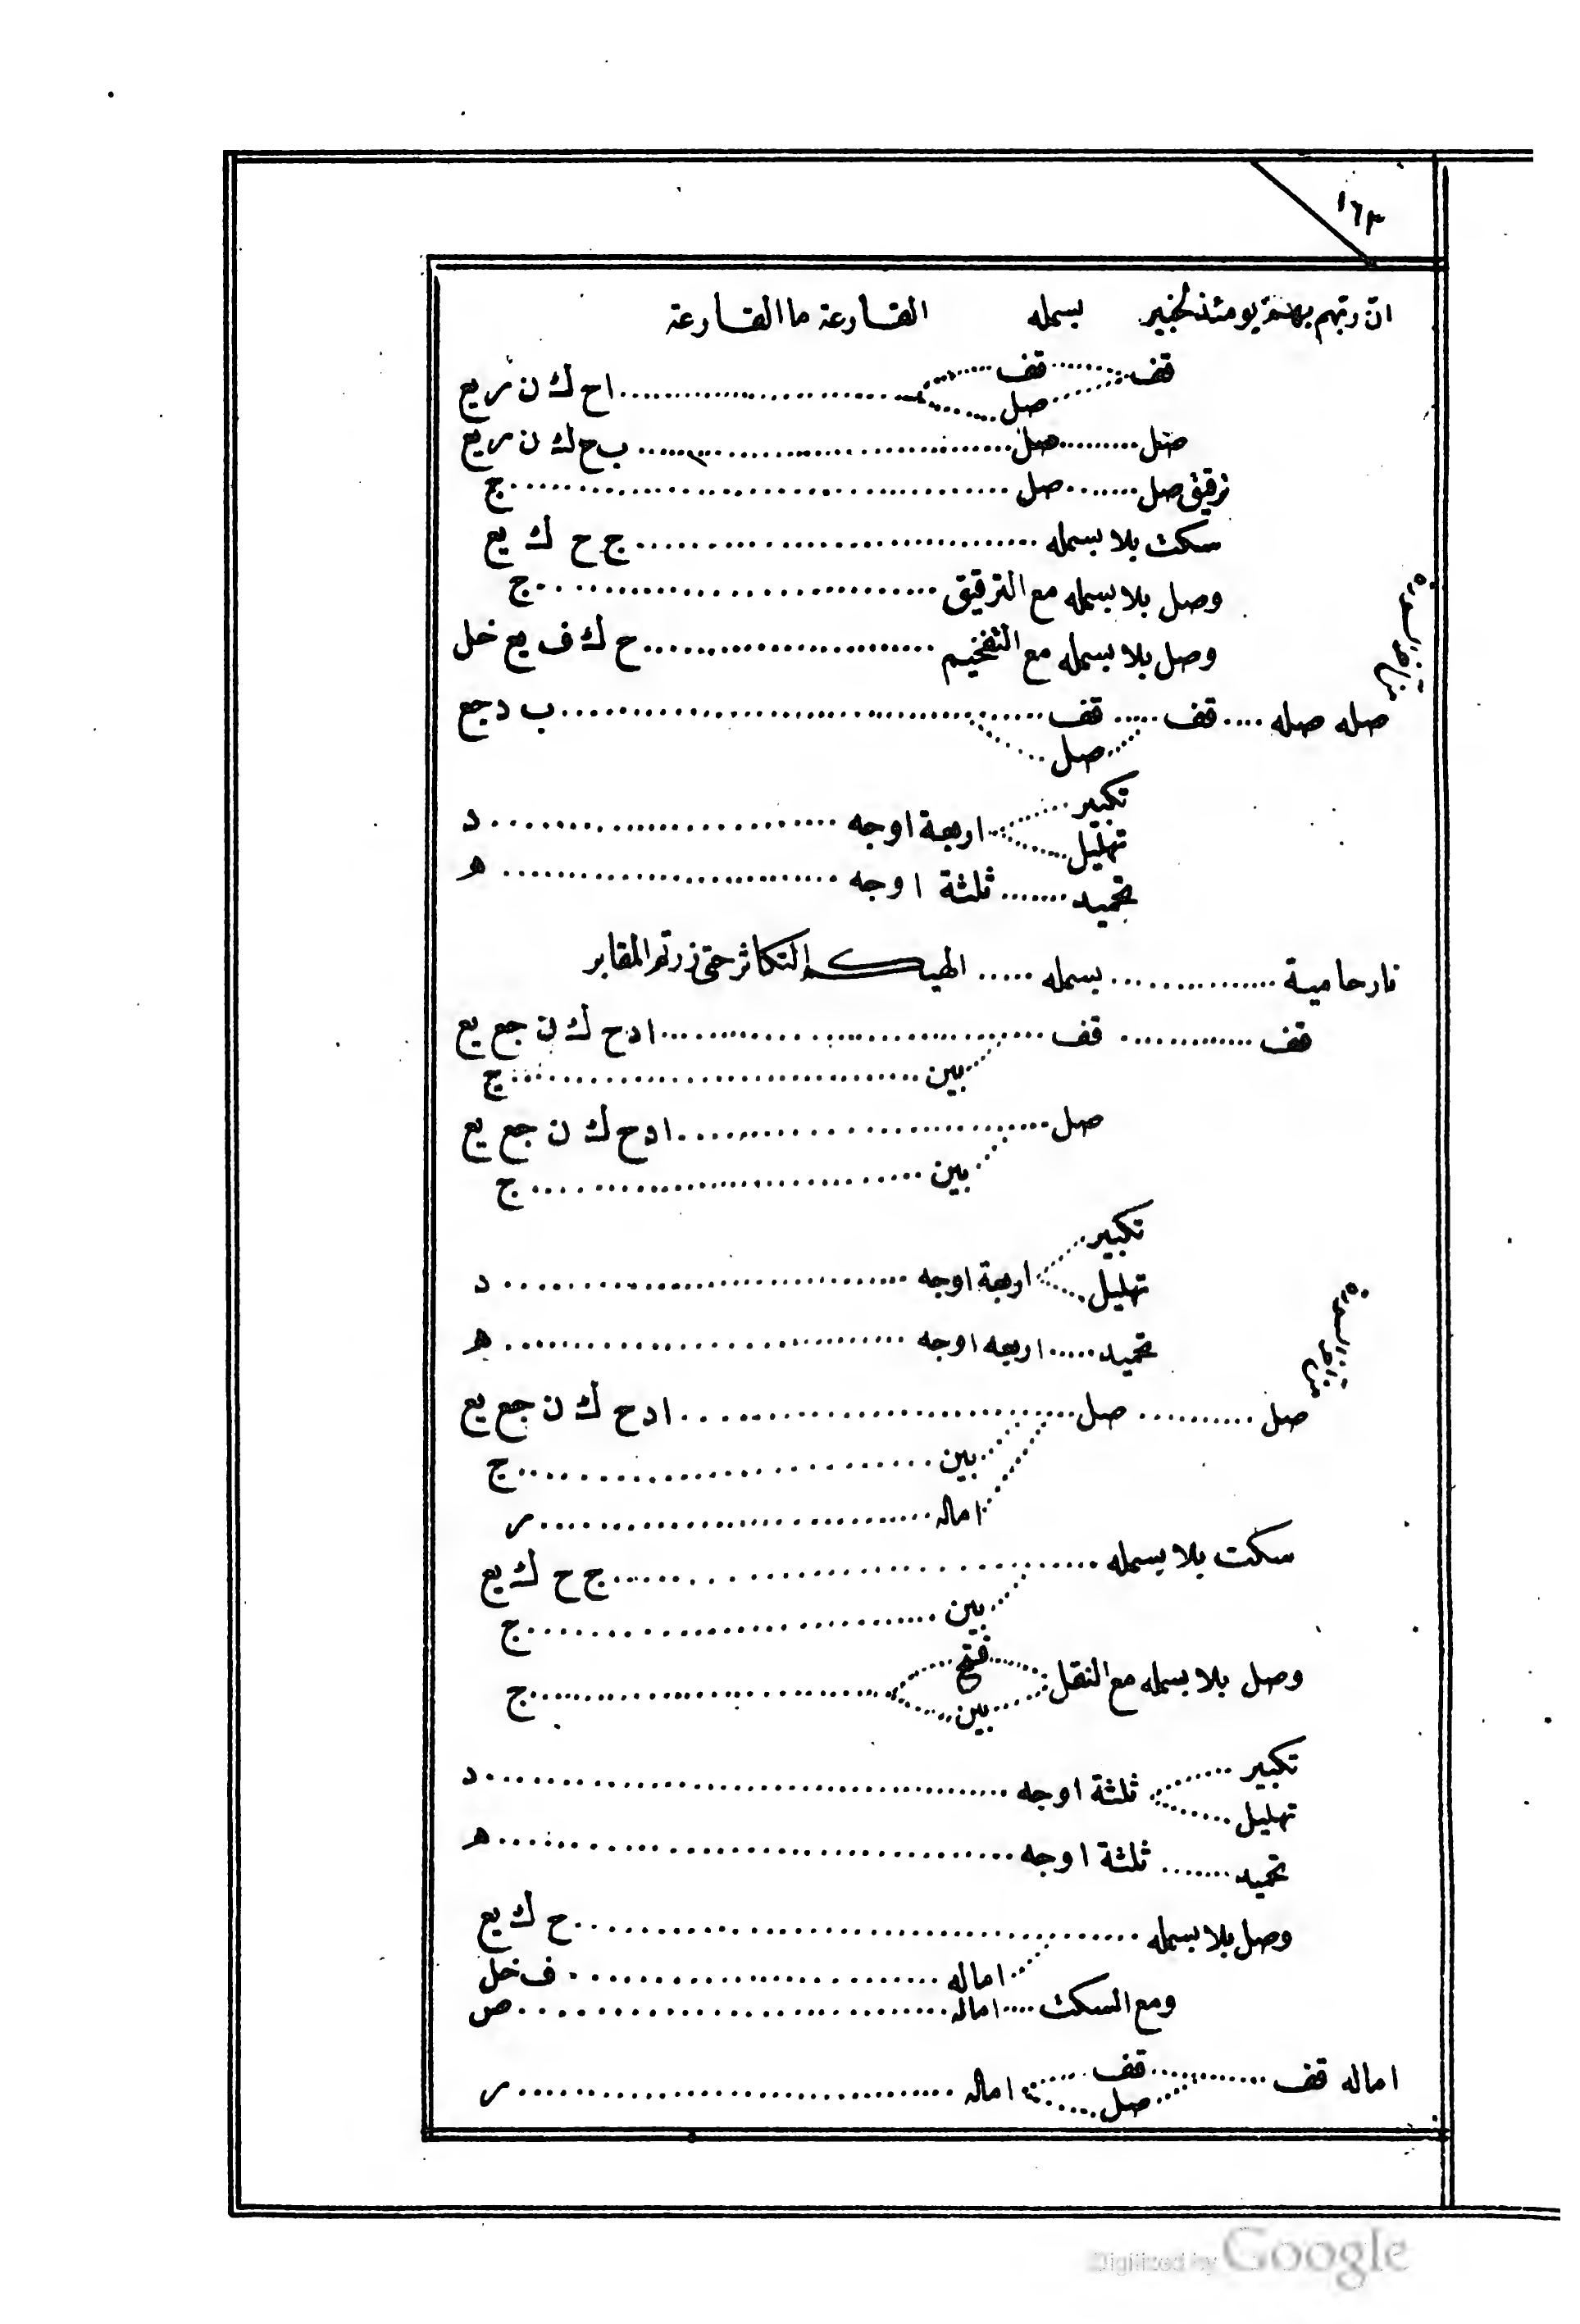 ١٦٣
ان ربهم بهم يومئذ لخبير بسمله القارعة ما القارعة
قف قف اح ك ن ر يع
صل
صل صل ب ح ك ن ر يع
ترقيق صل صل ج
سكت بلا بسمله ج ح ك يع
وصل بلا بسمله مع الترقيق ج
وصل بلا بسمله مع التفخيم ح ك ف يع خل
بين هذه السورة
صله صله قف قف ب د جع
صل
تكبير
تهليل اربعة اوجه د
تحميد ثلثة اوجه ه
نار حامية بسمله الهيكم التكاثر حتى زرتم المقابر
قف قف اد ح ك ن جع يع
بين ج
صل اد ح ك ن جع يع
بين ج
تكبير
تهليل اربعة اوجه د
تحميد اربعه اوجه ه
بين هذه السورة
صل صل اد ح ك ن جع يع
بين ج
اماله ر
سكت بلا بسمله ج ح ك يع
بين ج
وصل بلا بسمله مع النقل فتح ج
بين
تكبير
تهليل ثلثة اوجه د
تحميد ثلثة اوجه ه
وصل بلا بسمله ح ك يع
اماله ف خل
ومع السكت اماله ص
اماله قف قف اماله ر
صل
Digitized by Google